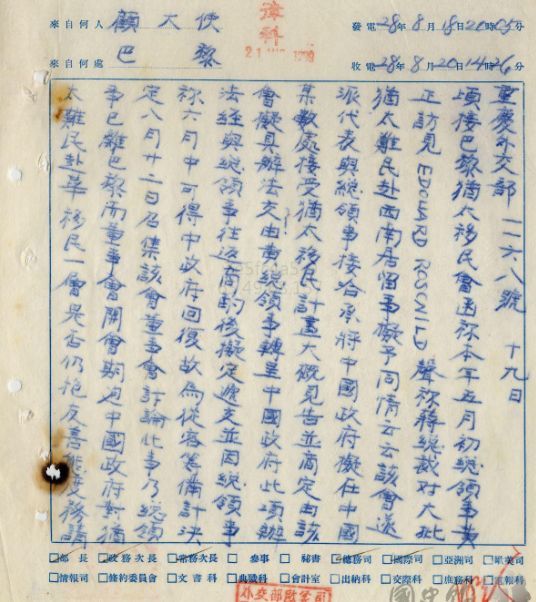 來自何人 顧大使
來自何處 巴黎
發電 28年8月18日20時05分
收電 28年8月20日14時26分
重慶外交部 一一六八號 十九日
頃接巴黎猶太移民會函稱本年五月初總領事黃
正訪見EDOUARD ROSCWILD聲稱蔣總裁對大批
猶太難民赴西南居留事擬予同情云云該會遂
派代表與總領事接洽承將中國政府擬在中國
集數處接受猶太移民計畫大概見告並商定由該
會擬具辦法交由黃總領事轉呈中國政府此項辦
法經與總領事往返商酌後擬定遞交並因總領事
稱六月中可得中政府回復故為從容籌備計決
定八月廿二日召集該會董事會討論此事乃總領
事已離巴黎而董事會開會期迫中國政府對猶
太難民赴華移民一層是否仍抱友善態度務請
部長 政務次長 常務次長 參事 祕書 總務司 國際司 亞洲司
情報司 條約委員會 文書科 典職科 會計室 出納科 交際科 庶務科 電報科
外交部歐美司